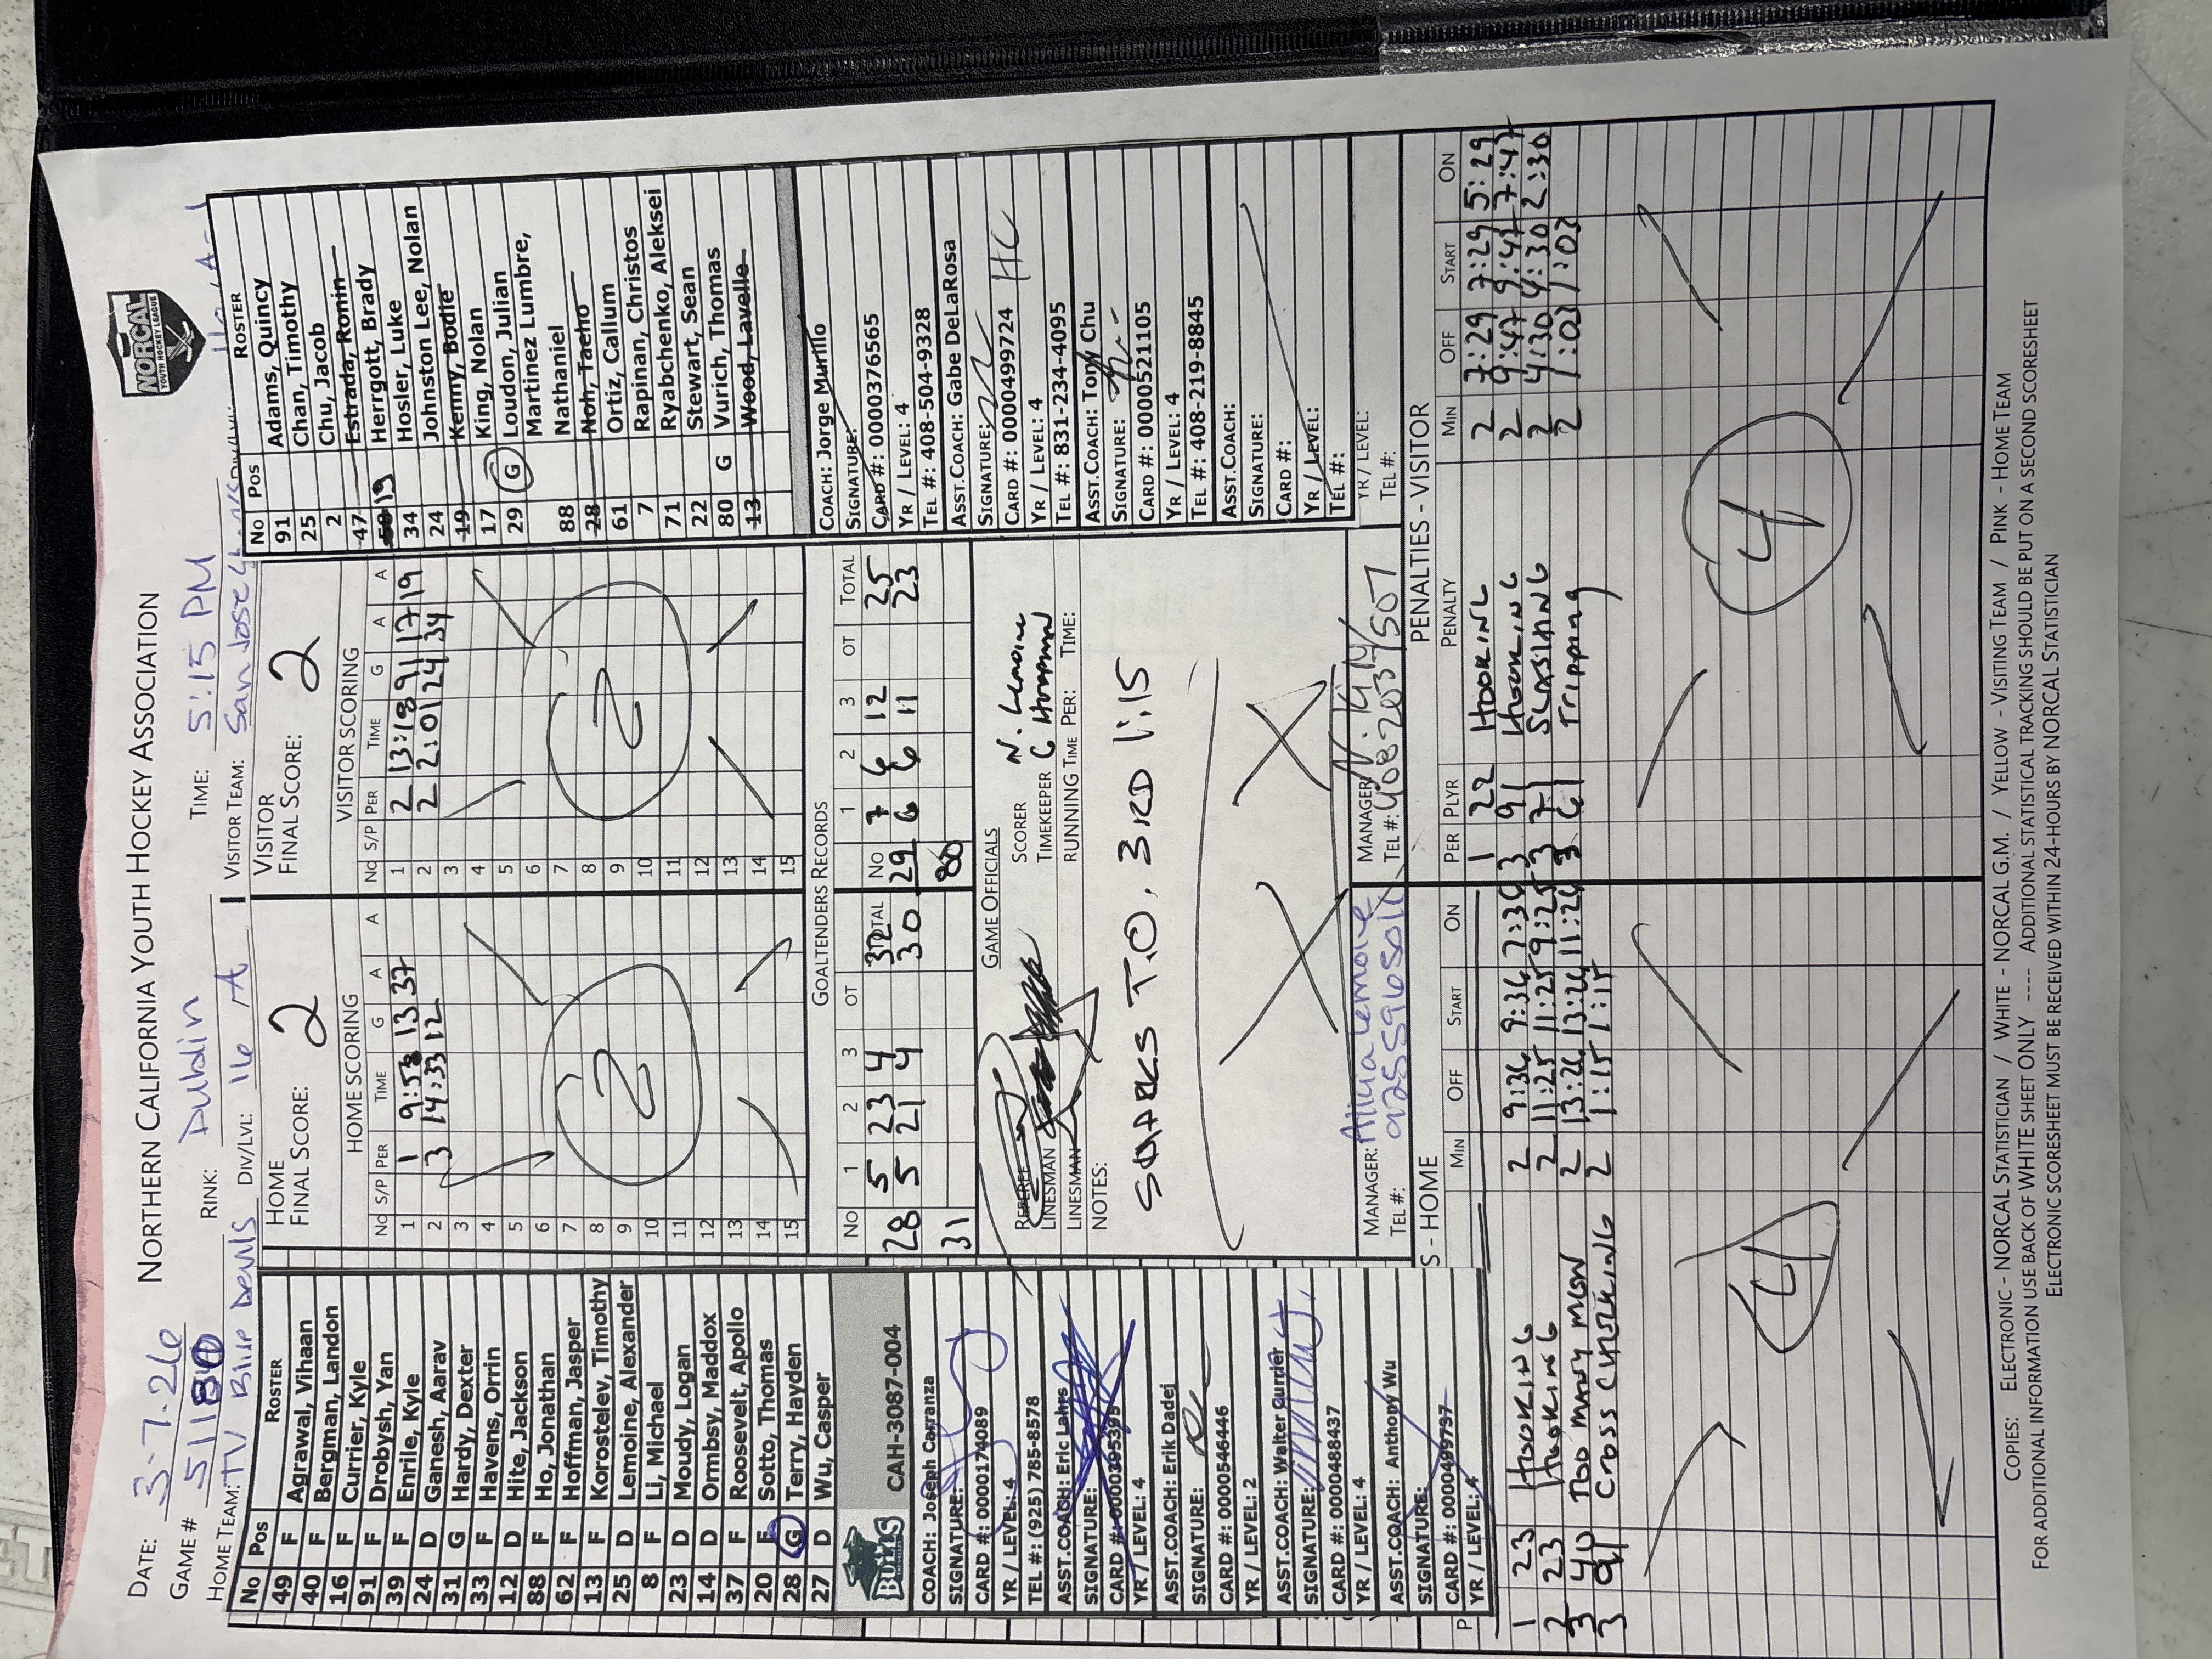 NORTHERN CALIFORNIA YOUTH HOCKEY ASSOCIATION
NORCAL
YOUTH HOCKEY LEAGUE
DATE: 3-7-26
GAME # 51180 RINK: Dublin TIME: 5:15 PM
HOME TEAM: TV Blue Devils DIV/LVL: 16 A VISITOR TEAM: San Jose
No Pos ROSTER
49 F Agrawal, Vihaan
40 F Bergman, Landon
16 F Currier, Kyle
91 F Drobysh, Yan
39 F Enrile, Kyle
24 D Ganesh, Aarav
31 G Hardy, Dexter
33 F Havens, Orrin
12 D Hite, Jackson
88 F Ho, Jonathan
62 F Hoffman, Jasper
13 F Korostelev, Timothy
25 D Lemoine, Alexander
8 F Li, Michael
23 D Moudy, Logan
14 D Ormbsy, Maddox
37 F Roosevelt, Apollo
20 F Sotto, Thomas
28 G Terry, Hayden
27 D Wu, Casper
BULLS CAH-3087-004
COACH: Joseph Carranza
SIGNATURE:
CARD #: 0000174089
YR / LEVEL: 4
TEL #: (925) 785-8578
ASST.COACH: Eric Lahrs
SIGNATURE:
CARD #: 0000395395
YR / LEVEL: 4
ASST.COACH: Erik Dadej
SIGNATURE:
CARD #: 0000546446
YR / LEVEL: 2
ASST.COACH: Walter Currier
SIGNATURE:
CARD #: 0000488437
YR / LEVEL: 4
ASST.COACH: Anthony Wu
SIGNATURE:
CARD #: 0000499737
YR / LEVEL: 4
HOME
FINAL SCORE: 2
HOME SCORING
No S/P PER TIME G A A
1 1 9:53 13 37
2 3 14:33 12
3
4
5
6
7
8
9
10
11
12
13
14
15
2
VISITOR
FINAL SCORE: 2
VISITOR SCORING
No S/P PER TIME G A A
1 2 13:18 91 17 19
2 2 2:01 24 34
3
4
5
6
7
8
9
10
11
12
13
14
15
2
GOALTENDERS RECORDS
No 1 2 3 OT TOTAL No 1 2 3 OT TOTAL
28 5 23 4 32 29 7 6 12 25
5 21 4 30 6 6 11 23
31 80
GAME OFFICIALS
REFEREE SCORER N. Lemoine
LINESMAN TIMEKEEPER C Hoffman
LINESMAN RUNNING TIME PER: TIME:
NOTES:
SHARKS T.O, 3RD 1:15
MANAGER: Alicia Lemoine
TEL #: 9255965011
MANAGER:
TEL #: 4082037507
No Pos ROSTER
91 Adams, Quincy
25 Chan, Timothy
2 Chu, Jacob
47 Estrada, Ronin
19 Herrgott, Brady
34 Hosler, Luke
24 Johnston Lee, Nolan
19 Kenny, Bodie
17 King, Nolan
29 G Loudon, Julian
Martinez Lumbre,
88 Nathaniel
28 Noh, Taeho
61 Ortiz, Callum
7 Rapinan, Christos
71 Ryabchenko, Aleksei
22 Stewart, Sean
80 G Vurich, Thomas
13 Wood, Lavelle
COACH: Jorge Murillo
SIGNATURE:
CARD #: 0000376565
YR / LEVEL: 4
TEL #: 408-504-9328
ASST.COACH: Gabe DeLaRosa
SIGNATURE: HC
CARD #: 0000499724
YR / LEVEL: 4
TEL #: 831-234-4095
ASST.COACH: Tony Chu
SIGNATURE:
CARD #: 0000521105
YR / LEVEL: 4
TEL #: 408-219-8845
ASST.COACH:
SIGNATURE:
CARD #:
YR / LEVEL:
TEL #:
YR / LEVEL:
TEL #:
S - HOME
P MIN OFF START ON
1 23 HOOKING 2 9:36 9:36 7:36
2 23 HOOKING 2 11:25 11:25 9:25
3 40 TOO MANY MEN 2 13:26 13:26 11:26
3 91 CROSS CHECKING 2 1:15 1:15
4
PENALTIES - VISITOR
PER PLYR PENALTY MIN OFF START ON
1 22 HOOKING 2 7:29 7:29 5:29
3 91 HOOKING 2 9:47 9:47 7:47
3 71 SLASHING 2 4:30 4:30 2:30
3 61 Tripping 2 1:03 1:03
4
COPIES: ELECTRONIC - NORCAL STATISTICIAN / WHITE - NORCAL G.M. / YELLOW - VISITING TEAM / PINK - HOME TEAM
FOR ADDITIONAL INFORMATION USE BACK OF WHITE SHEET ONLY ---- ADDITIONAL STATISTICAL TRACKING SHOULD BE PUT ON A SECOND SCORESHEET
ELECTRONIC SCORESHEET MUST BE RECEIVED WITHIN 24-HOURS BY NORCAL STATISTICIAN